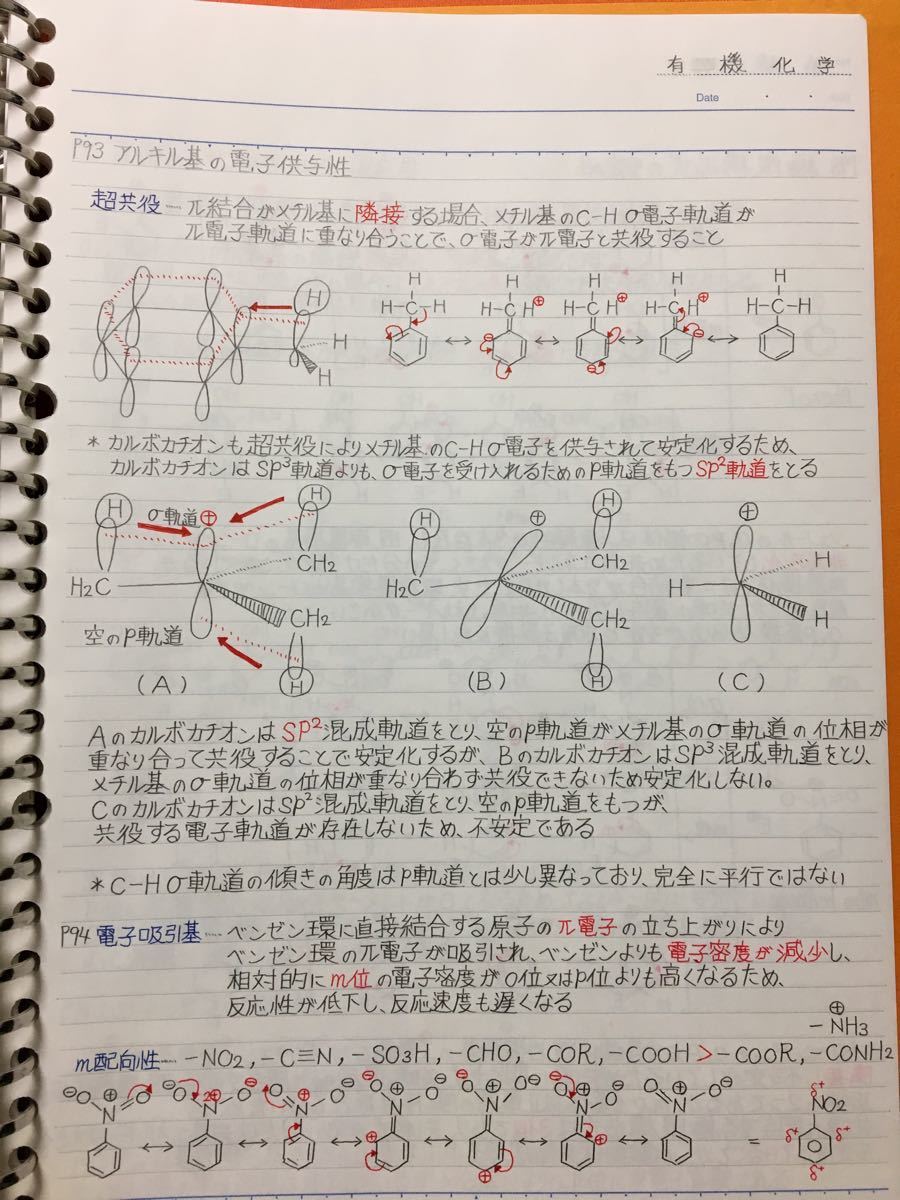 有 機 化 学
Date ・ ・
P93 アルキル基の電子供与性
超共役…π結合がメチル基に隣接する場合、メチル基のC-H σ電子軌道が
π電子軌道に重なり合うことで、σ電子がπ電子と共役すること
H H H
H H H H H
H-C-H H-C H⊕ H-C H⊕ H-C H⊕ H-C-H
⊖ ⊖ ⊖
↔ ↔ ↔ ↔
* カルボカチオンも超共役によりメチル基のC-H σ電子を供与されて安定化するため、
カルボカチオンはSP³軌道よりも、σ電子を受け入れるためのP軌道をもつSP²軌道をとる
H σ軌道 ⊕ H H ⊕ H ⊕
H₂C CH₂ H₂C CH₂ H H
CH₂ CH₂ H
空のP軌道
H H
(A) (B) (C)
AのカルボカチオンはSP²混成軌道をとり、空のP軌道がメチル基のσ軌道の位相が
重なり合って共役することで安定化するが、BのカルボカチオンはSP³混成軌道をとり、
メチル基のσ軌道の位相が重なり合わず共役できないため安定化しない。
CのカルボカチオンはSP²混成軌道をとり、空のP軌道をもつが、
共役する電子軌道が存在しないため、不安定である
* C-H σ軌道の傾きの角度はP軌道とは少し異なっており、完全に平行ではない
P94 電子吸引基…ベンゼン環に直接結合する原子のπ電子の立ち上がりにより
ベンゼン環のπ電子が吸引され、ベンゼンよりも電子密度が減少し、
相対的にm位の電子密度がo位又はp位よりも高くなるため、
反応性が低下し、反応速度も遅くなる
⊕
-NH₃
m配向性…-NO₂, -C≡N, -SO₃H, -CHO, -COR, -COOH > -COOR, -CONH₂
⊖O ⊕N O ⊖O 2⊕N O⊖ ⊖O ⊕N O⊖ ⊖O ⊕N O⊖ ⊖O ⊕N O⊖ ⊖O ⊕N O⊖ O ⊕N O⊖ δ+ NO₂
↔ ↔ ↔ ⊕ ↔ ↔ ⊕ ↔ = δ+ δ+
⊕ δ+